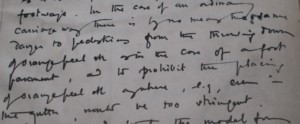 footways. In the case of an ordinary
carriage way there is by no means the same
danger to pedestrians from the throwing down
of orange peel etc as in the case of a foot
pavement, and to prohibit the placing
of orange peel etc anywhere, e.g., even in
the gutter, would be too stringent.
the model form